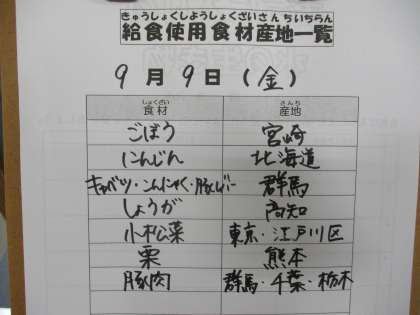 きゅうしょくしようしょくざいさんちいちらん
給食使用食材産地一覧
9月9日(金)
しょくざい さんち
食材 産地
ごぼう 宮崎
にんじん 北海道
キャベツ・こんにゃく・豚レバー 群馬
しょうが 高知
小松菜 東京・江戸川区
栗 熊本
豚肉 群馬・千葉・栃木